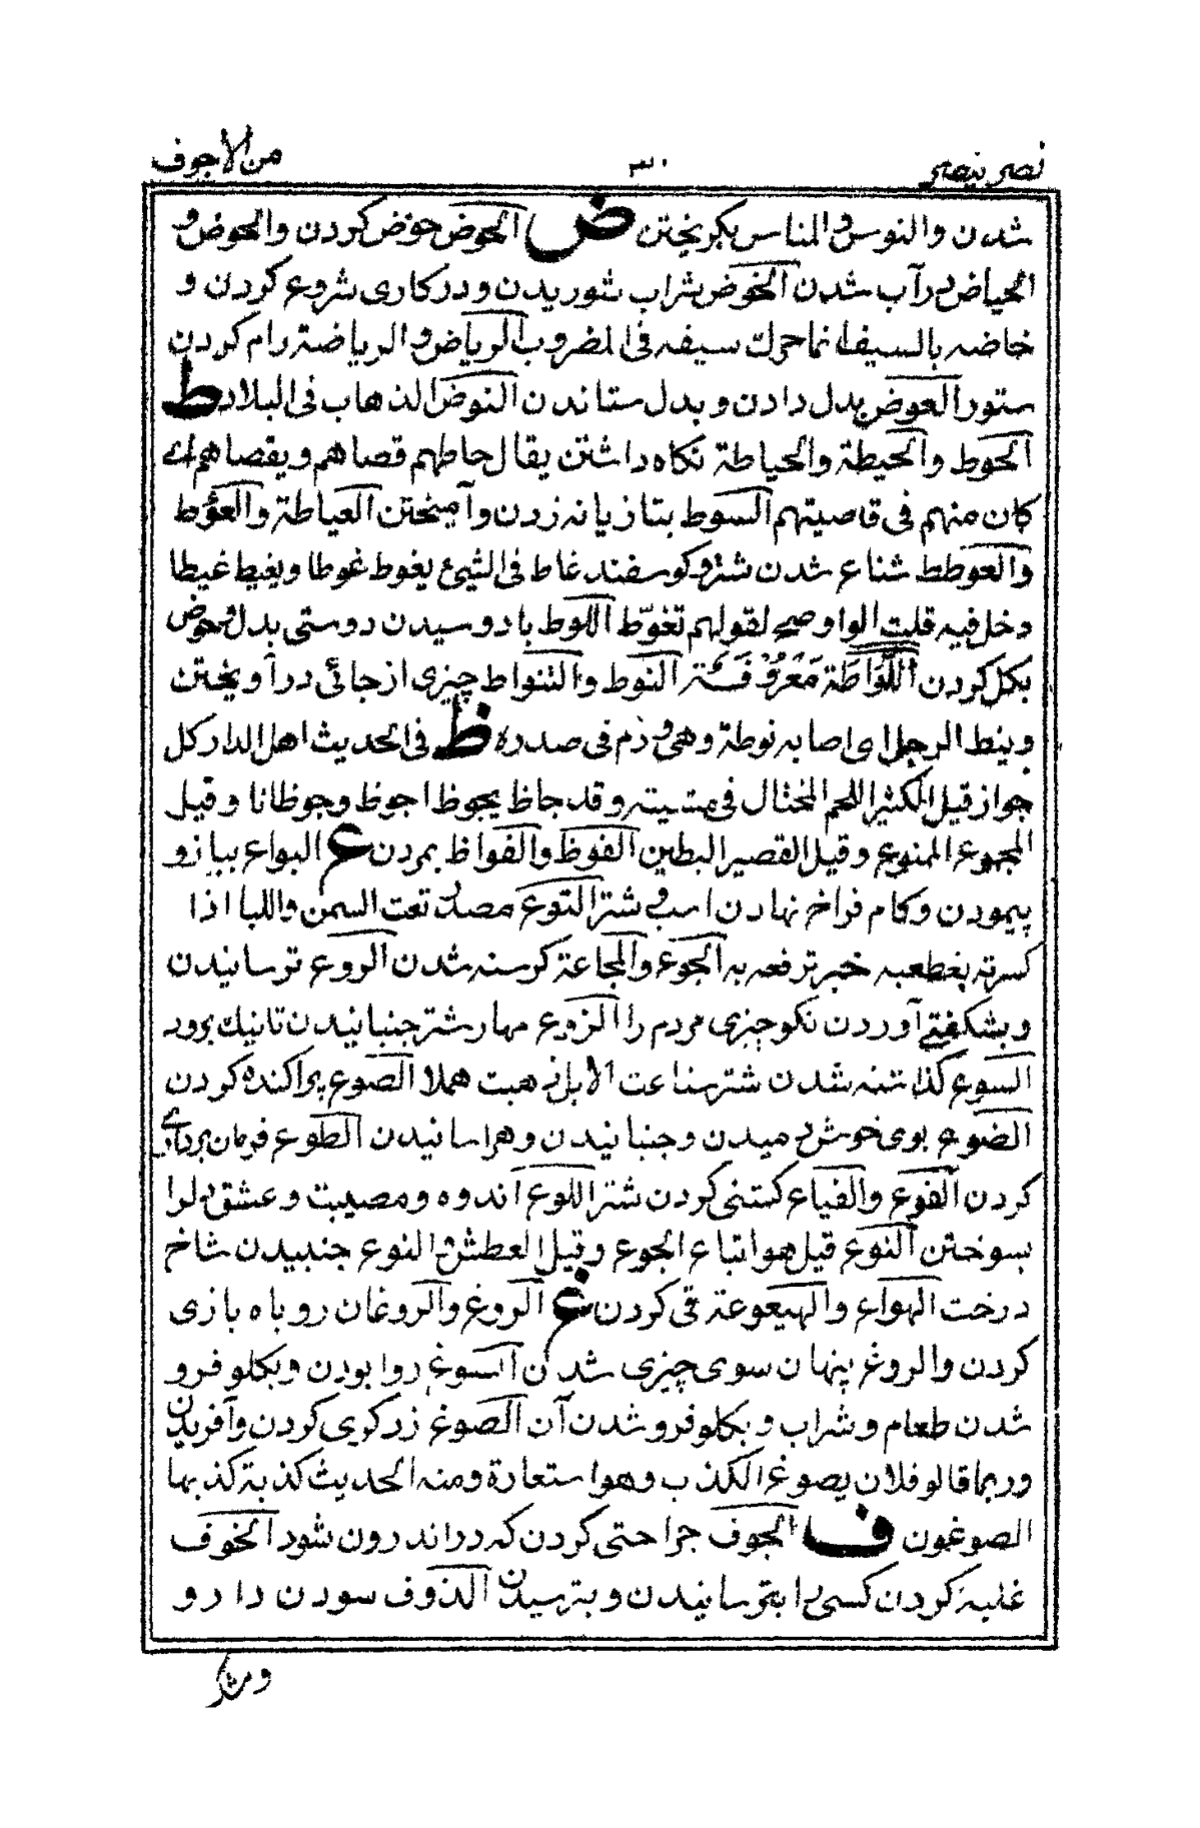 نصر ينصر
۳۰
من الاجوف
شدن والنوس والمناس بكريختن ض الحوض حوض كردن والخوض و
الخياض درآب شدن الخوض شراب شوريدن ودركارى شروع كردن و
خاضه بالسيف اى نما حرك سيفه فى المضروب الرياض والرياضة رام كردن
ستور العوض بدل دادن وبدل ستاندن النوض الذهاب فى البلاد ط
الحوط والحيطة والحياطة نكاه داشتن يقال حاطهم قصاهم وبقصاهم اے
كان منهم فى قاصيتهم السوط بتازيانه زدن وآميختن العياطة والعؤط
والعوطط شدن شتر وكوسفند غاط فى الشئ يغوط غوطا ويغيط غيطا
دخل فيه قلت الواو صح لقولهم تغوّط اللوط بادوسيدن دوستى بدل وحوض
بكل كردن اللِّوَاطَة مَعْرُوفَة النوط والتنواط چيزى ازجائى درآويختن
وينط الرجل اى اصابه نوطة وهى ورم فى صدره ظ فى الحديث اهل الدار كل
جواز قيل الكثير اللحم المختال فى مشيته وقد جاظ يجوظ اجوظ وجوظانا وقيل
الجموع المنوع وقيل القصير البطين الفوظ والفواظ بمردن ع البواع ببازو
پيمودن وكام فراخ نهادن اسب وشتر التوع مصدر تعت السمن واللبا اذا
كسرته بقطعه خبز ترفعه به الجوع والمجاعة كرسنه شدن الروع ترسانيدن
وبشكفتے آوردن نكوچيزى مردم را الزوع مهار شتر جنبانيدن تا نيك برود
السوع كذاشته شدن شتر ساعت الابل ذهبت هملا الصوع پراكنده كردن
الضوع بوى خوش دميدن وجنبانيدن وهراسانيدن الطوع فرمان بردارے
كردن الفوع والفياع كشنى كردن شتر اللوع اندوه ومصيبت وعشق دل را
بسوختن النوع قيل هو اتباع الجوع وقيل العطش والنوع جنبيدن شاخ
درخت الهواع والهيعوعة قى كردن غ الروغ والروغان روباه بازى
كردن والروغ پنهان سوى چيزى شدن السوغ روا بودن وبكلو فرو
شدن طعام وشراب وبكلو فرو شدن آن الصوغ زركرى كردن وآفريدن
وربما قالو فلان يصوغ الكذب وهو استعارة ومنه الحديث كذبة كذبها
الصوغون ف الجوف جراحتى كردن كه در اندرون شود الخوف
غلبه كردن كسى را بترسانيدن وبترسيدن الذوف سودن دارو